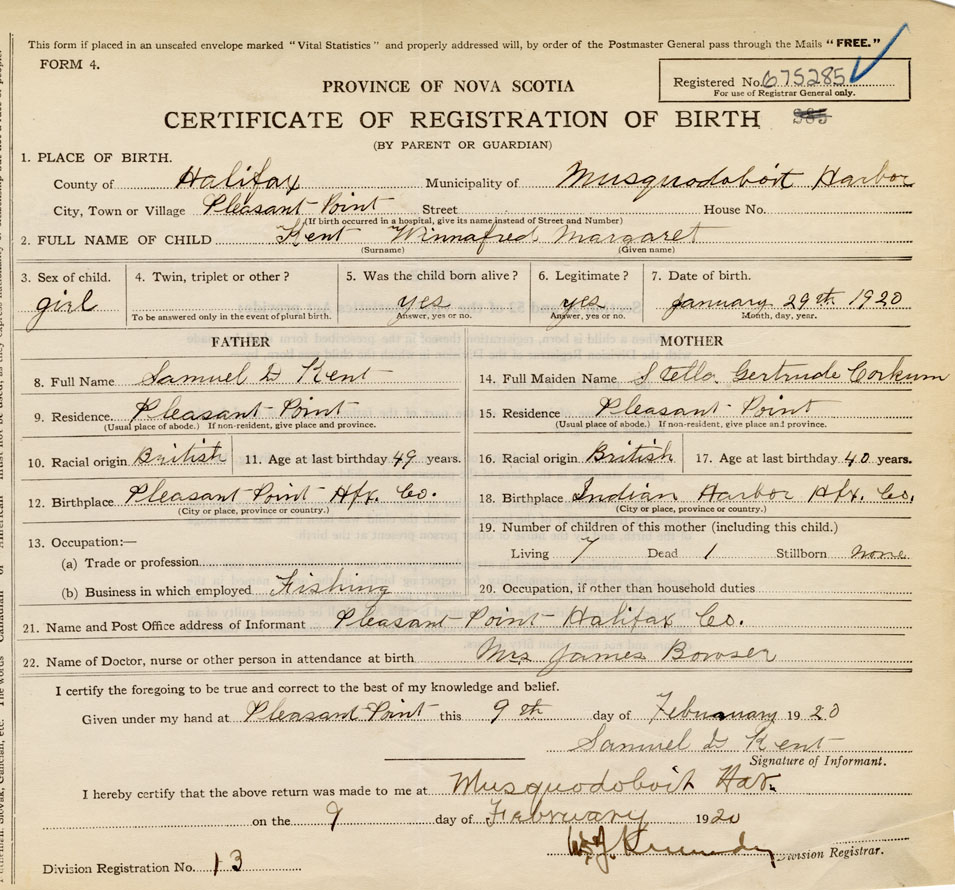 This form if placed in an unsealed envelope marked "Vital Statistics" and properly addressed will, by order of the Postmaster General pass through the Mails "FREE."
FORM 4.
Registered No. 675285
For use of Registrar General only.
PROVINCE OF NOVA SCOTIA
CERTIFICATE OF REGISTRATION OF BIRTH
(BY PARENT OR GUARDIAN)
1. PLACE OF BIRTH.
County of Halifax Municipality of Musquodoboit Harbor
City, Town or Village Pleasant Point Street House No.
(If birth occurred in a hospital, give its name instead of Street and Number)
2. FULL NAME OF CHILD Kent Winnafred Margaret
(Surname) (Given name)
3. Sex of child. 4. Twin, triplet or other? 5. Was the child born alive? 6. Legitimate? 7. Date of birth.
girl yes yes January 29th 1920
To be answered only in the event of plural birth. Answer, yes or no. Answer, yes or no. Month, day, year.
FATHER MOTHER
8. Full Name Samuel D Kent 14. Full Maiden Name Stella Gertrude Corkum
9. Residence. Pleasant Point 15. Residence Pleasant Point
(Usual place of abode.) If non-resident, give place and province. (Usual place of abode.) If non-resident, give place and province.
10. Racial origin British 11. Age at last birthday 49 years. 16. Racial origin British 17. Age at last birthday 40 years.
12. Birthplace Pleasant Point Hfx. Co. 18. Birthplace Indian Harbor Hfx. Co.
(City or place, province or country.) (City or place, province or country.)
19. Number of children of this mother (including this child.)
13. Occupation:—
Living 7 Dead 1 Stillborn none
(a) Trade or profession
(b) Business in which employed Fishing 20. Occupation, if other than household duties
21. Name and Post Office address of Informant Pleasant Point Halifax Co.
22. Name of Doctor, nurse or other person in attendance at birth Mrs James Bowser
I certify the foregoing to be true and correct to the best of my knowledge and belief.
Given under my hand at Pleasant Point this 9th day of Februuary 1920
Samuel D Kent
Signature of Informant.
I hereby certify that the above return was made to me at Musquodoboit Har.
on the 9 day of February 1920
Division Registrar.
Division Registration No. 13